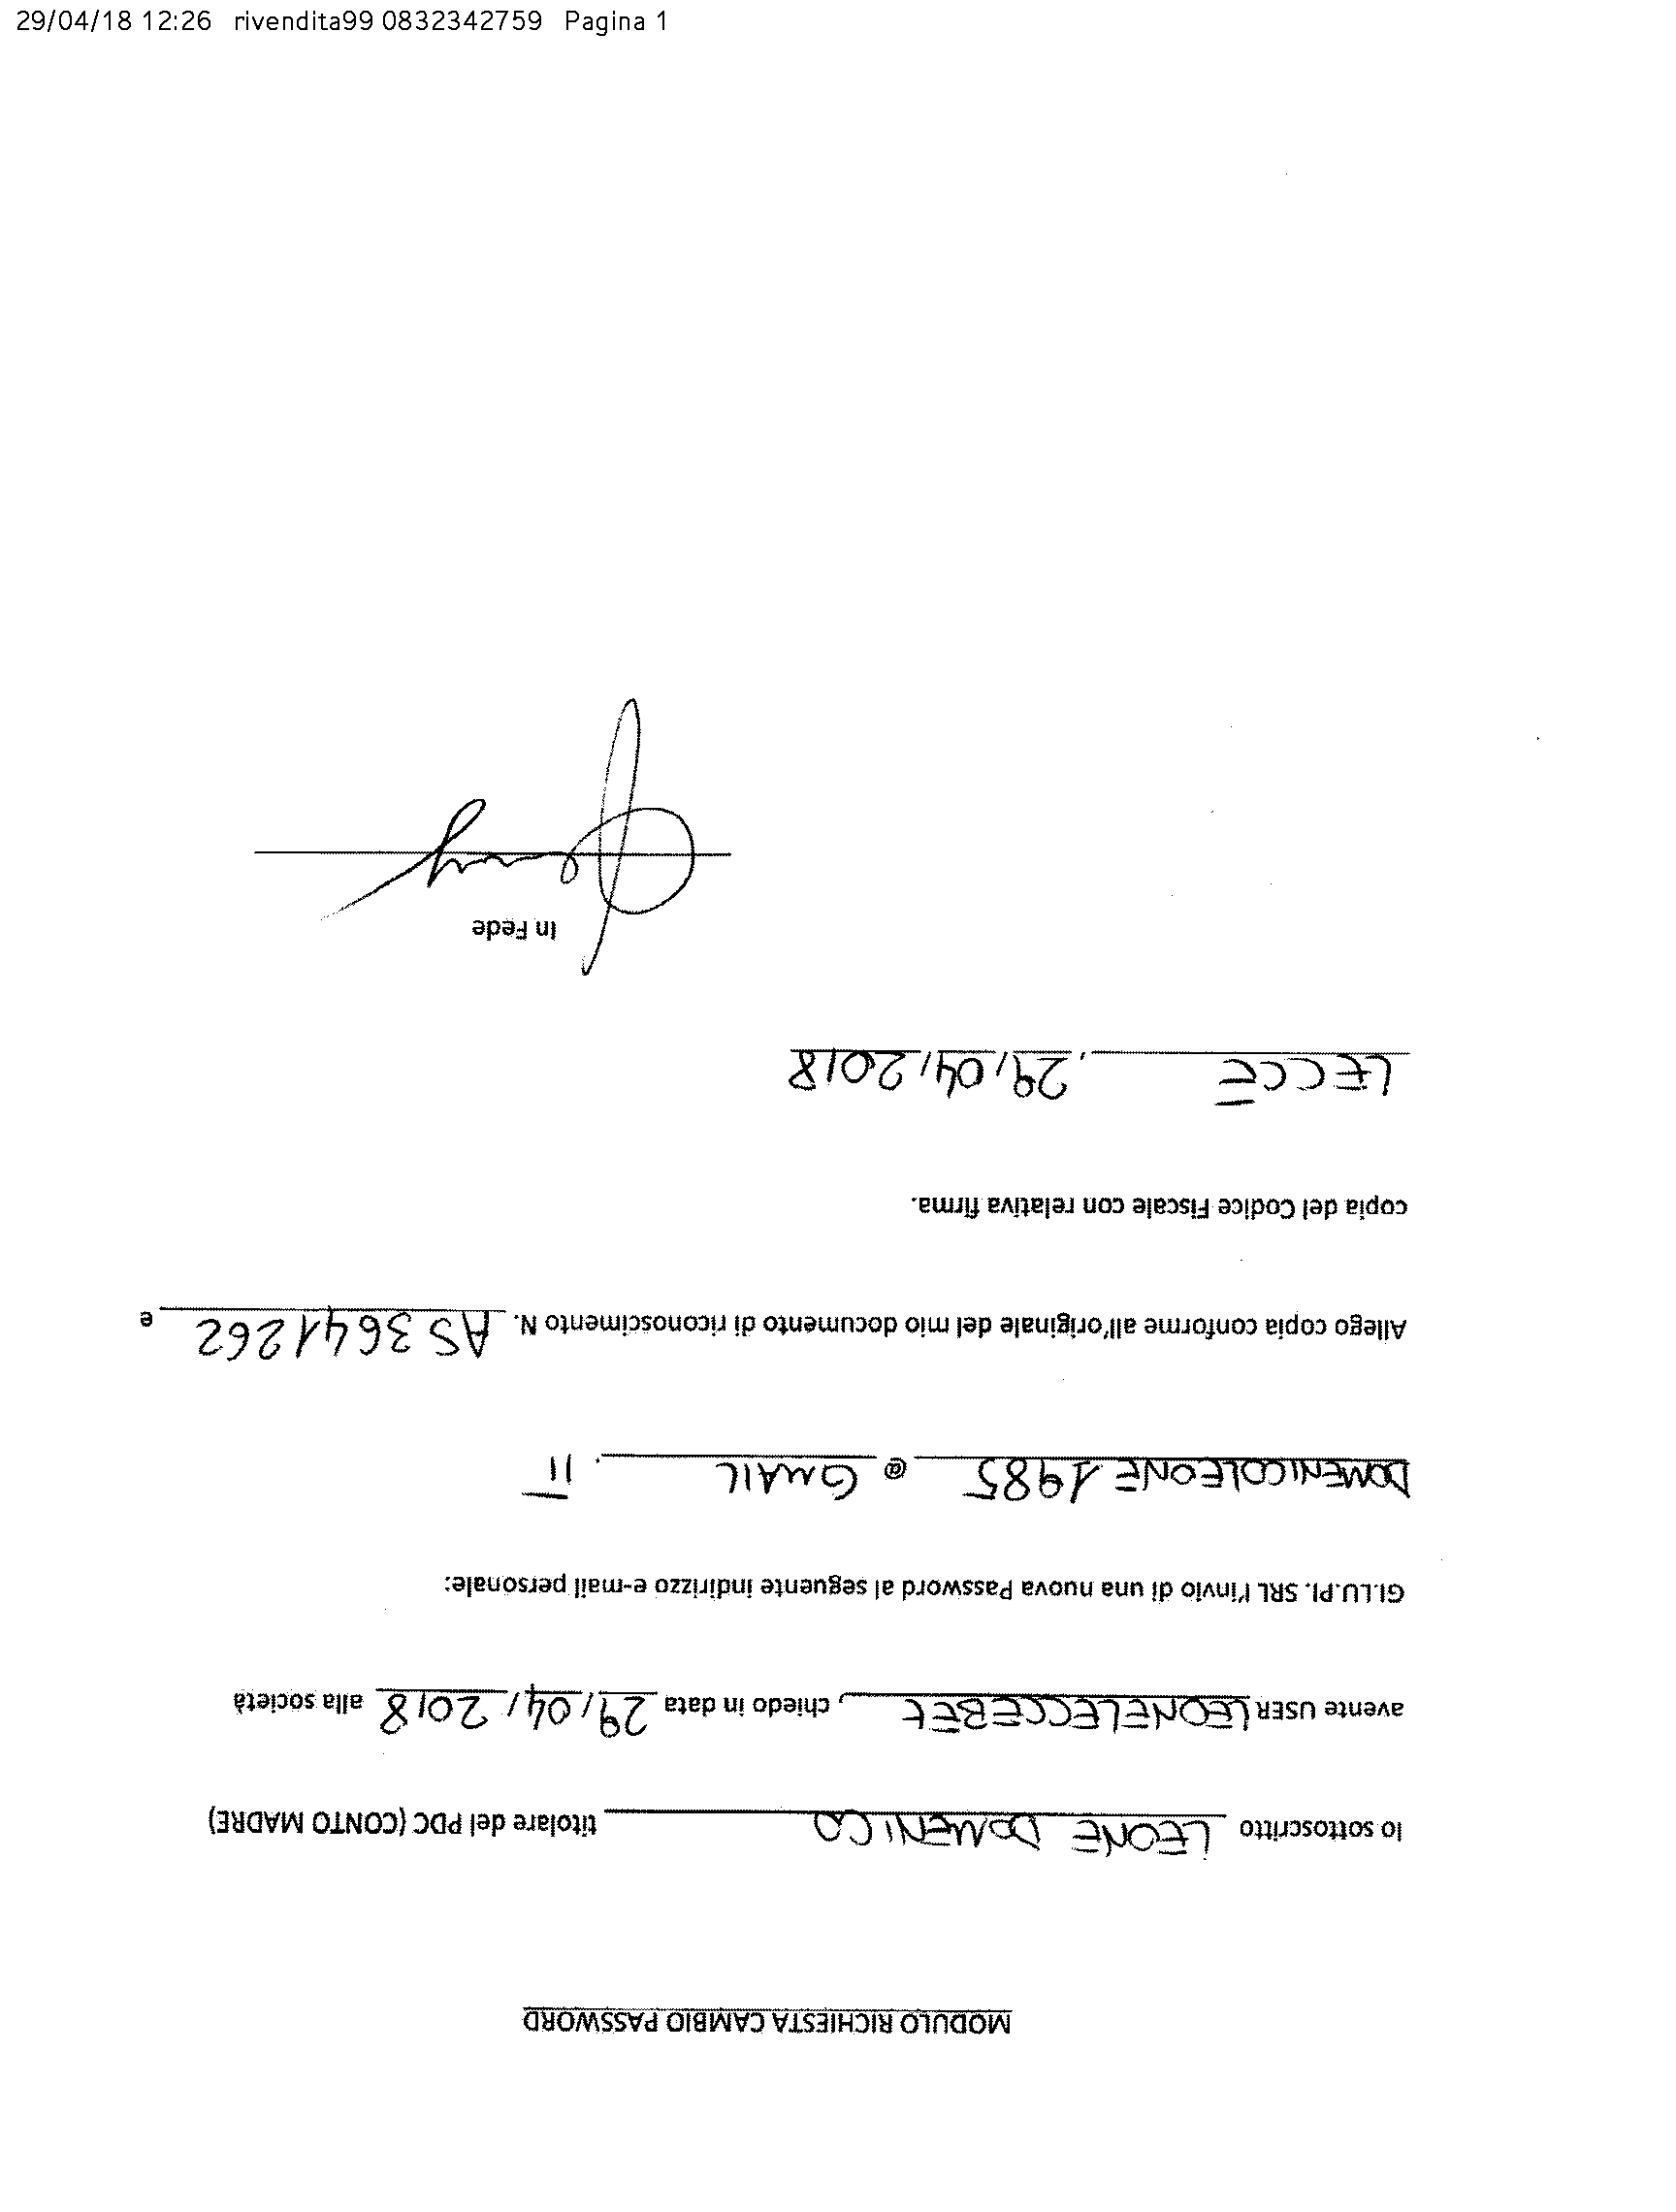 29/04/18 12:26 rivendita99 0832342759 Pagina 1
MODULO RICHIESTA CAMBIO PASSWORD
Io sottoscritto LEONE DOMENICO titolare del PDC (CONTO MADRE)
avente USER LEONELECCEBET, chiedo in data 29/04/2018 alla società
GI.LU.PI. SRL l'invio di una nuova Password al seguente indirizzo e-mail personale:
DOMENICOLEONE1985 @ GMAIL . IT
Allego copia conforme all'originale del mio documento di riconoscimento N. AS 3641262 e
copia del Codice Fiscale con relativa firma.
LECCE, 29/04/2018
In Fede